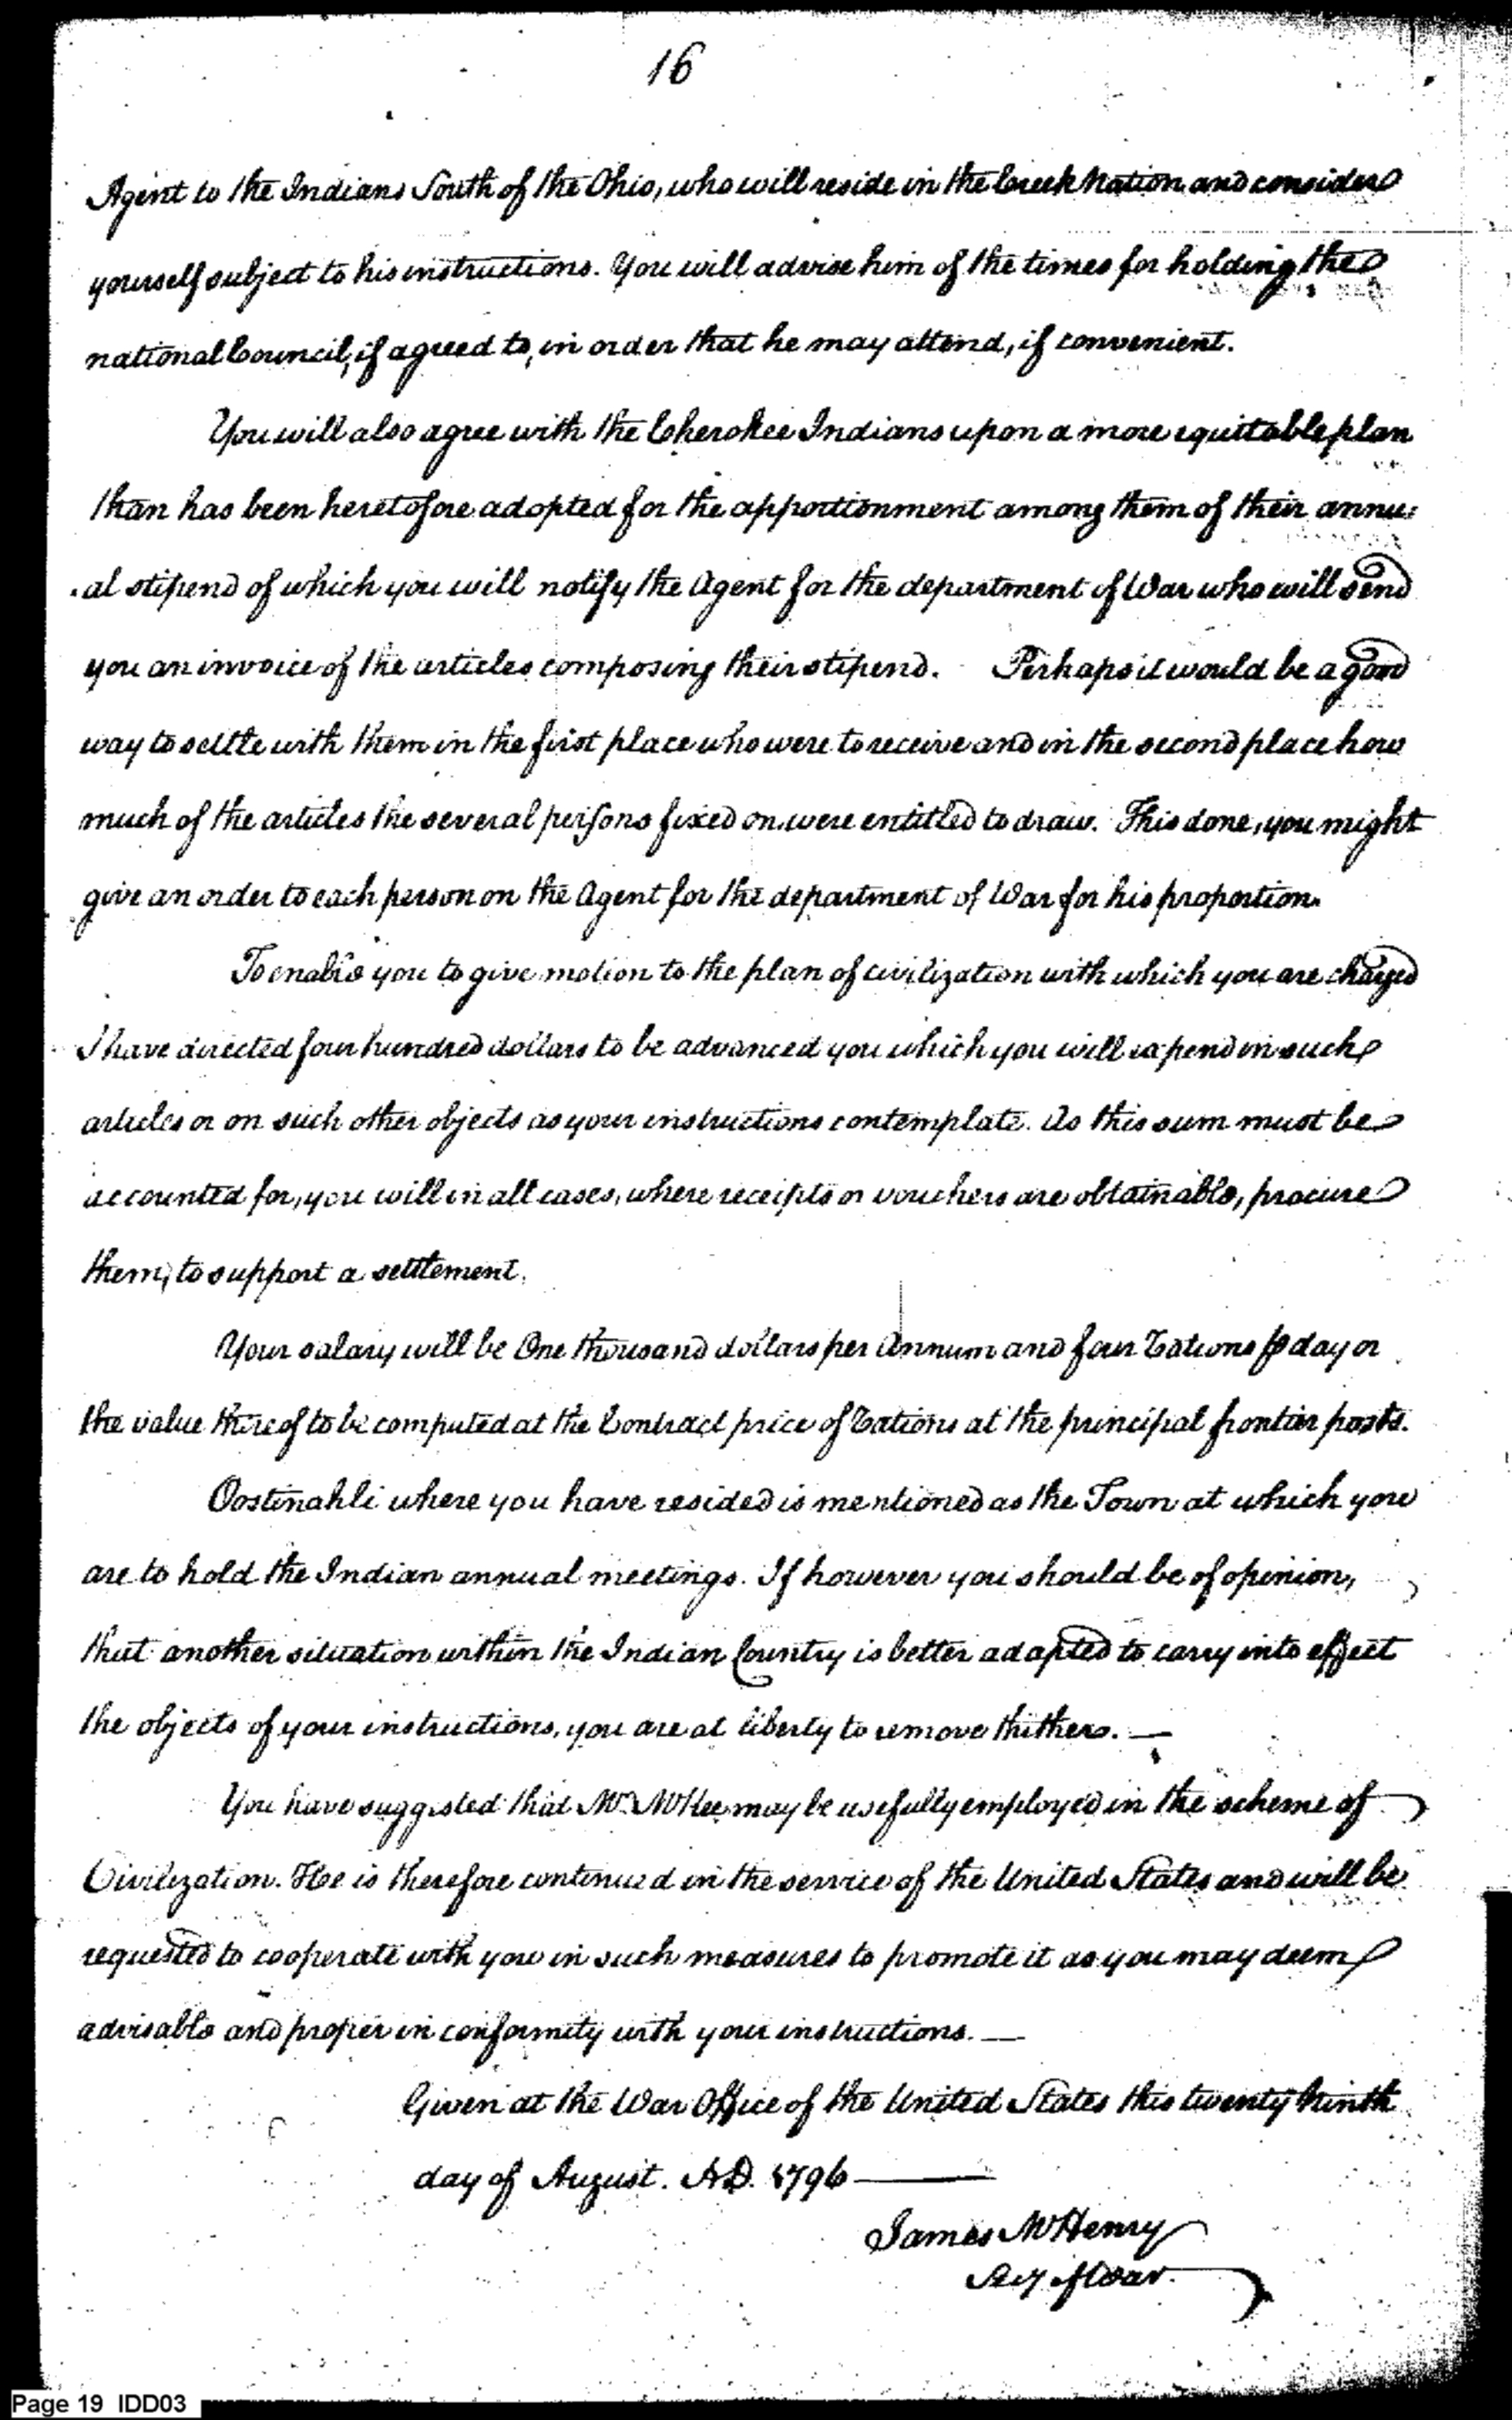 16
Agent to the Indians South of the Ohio, who will reside in the Creek Nation and consider
yourself subject to his instructions. You will advise him of the times for holding the
national Council, if agreed to, in order that he may attend, if convenient.
You will also agree with the Cherokee Indians upon a more equitable plan
than has been heretofore adopted for the apportionment among them of their annu=
al stipend of which you will notify the Agent for the department of War who will send
you an invoice of the articles composing their stipend. Perhaps it would be a good
way to settle with them in the first place who were to receive and in the second place how
much of the articles the several persons fixed on were entitled to draw. This done, you might
give an order to each person on the Agent for the department of War for his proportion.
To enable you to give motion to the plan of civilization with which you are charged
I have directed four hundred dollars to be advanced you which you will expend in such
articles or on such other objects as your instructions contemplate. As this sum must be
accounted for, you will in all cases, where receipts or vouchers are obtainable, procure
them, to support a settlement.
Your salary will be One thousand dollars per Annum and four rations ⅌ day or
the value thereof to be computed at the Contract price of rations at the principal frontier posts.
Oostinahli where you have resided is mentioned as the Town at which you
are to hold the Indian annual meetings. If however you should be of opinion,
that another situation within the Indian Country is better adapted to carry into effect
the objects of your instructions, you are at liberty to remove thither. —
You have suggested that Mr. McKee may be usefully employed in the scheme of
Civilization. He is therefore continued in the service of the United States and will be
requested to cooperate with you in such measures to promote it as you may deem
advisable and proper in conformity with your instructions. —
Given at the War Office of the United States this twenty ninth
day of August. A.D. 1796 —
James McHenry
Secy of War.
Page 19 IDD03